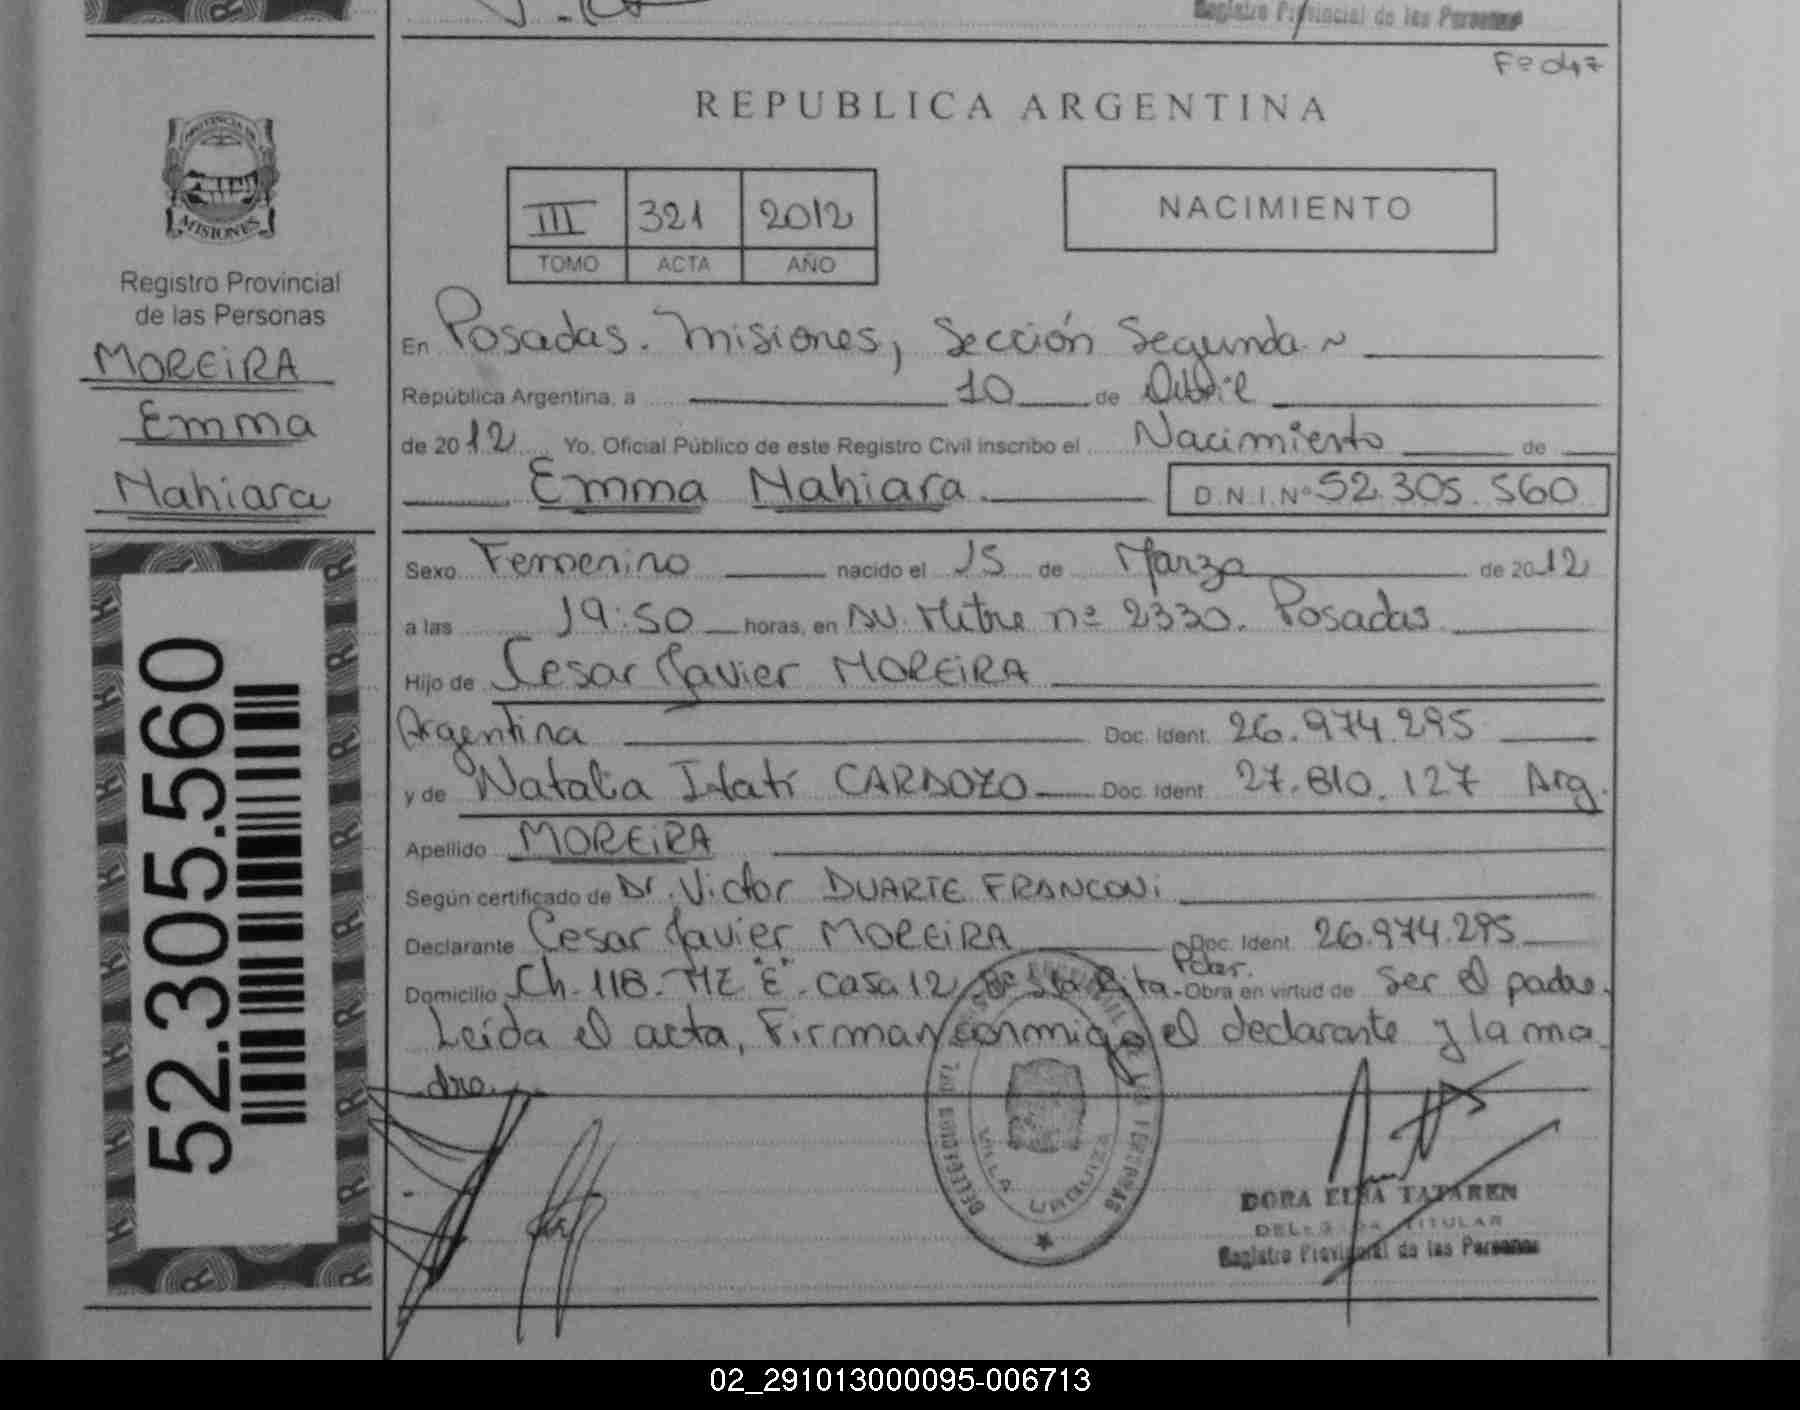 Registro Provincial de las Personas
Fº 047
PROVINCIA DE
MISIONES
Registro Provincial
de las Personas
MOREIRA
Emma
Nahiara
52.305.560
REPUBLICA ARGENTINA
III 321 2012
TOMO ACTA AÑO
NACIMIENTO
En Posadas. Misiones, Sección Segunda
República Argentina, a 10 de Abril
de 2012 Yo, Oficial Público de este Registro Civil inscribo el Nacimiento de
Emma Nahiara D.N.I. Nº 52.305.560
Sexo Femenino nacido el 15 de Marzo de 2012
a las 19:50 horas, en Av. Mitre nº 2330. Posadas
Hijo de Cesar Javier MOREIRA
Argentina Doc. Ident. 26.974.295
y de Natalia Itatí CARDOZO Doc. Ident. 27.810.127 Arg.
Apellido MOREIRA
Según certificado de Dr. Victor DUARTE FRANCONi
Declarante Cesar Javier MOREIRA Doc. Ident. 26.974.295
Domicilio Ch. 118. MZ "E". Casa 12 Bº Sta Rita. Pdas. Obra en virtud de ser el padre.
Leída el acta, Firman conmigo el declarante y la ma
dre.
DELEGACION
VILLA URQUIZA
DORA ELSA TATAREN
DELEGADA TITULAR
Registro Provincial de las Personas
02_291013000095-006713